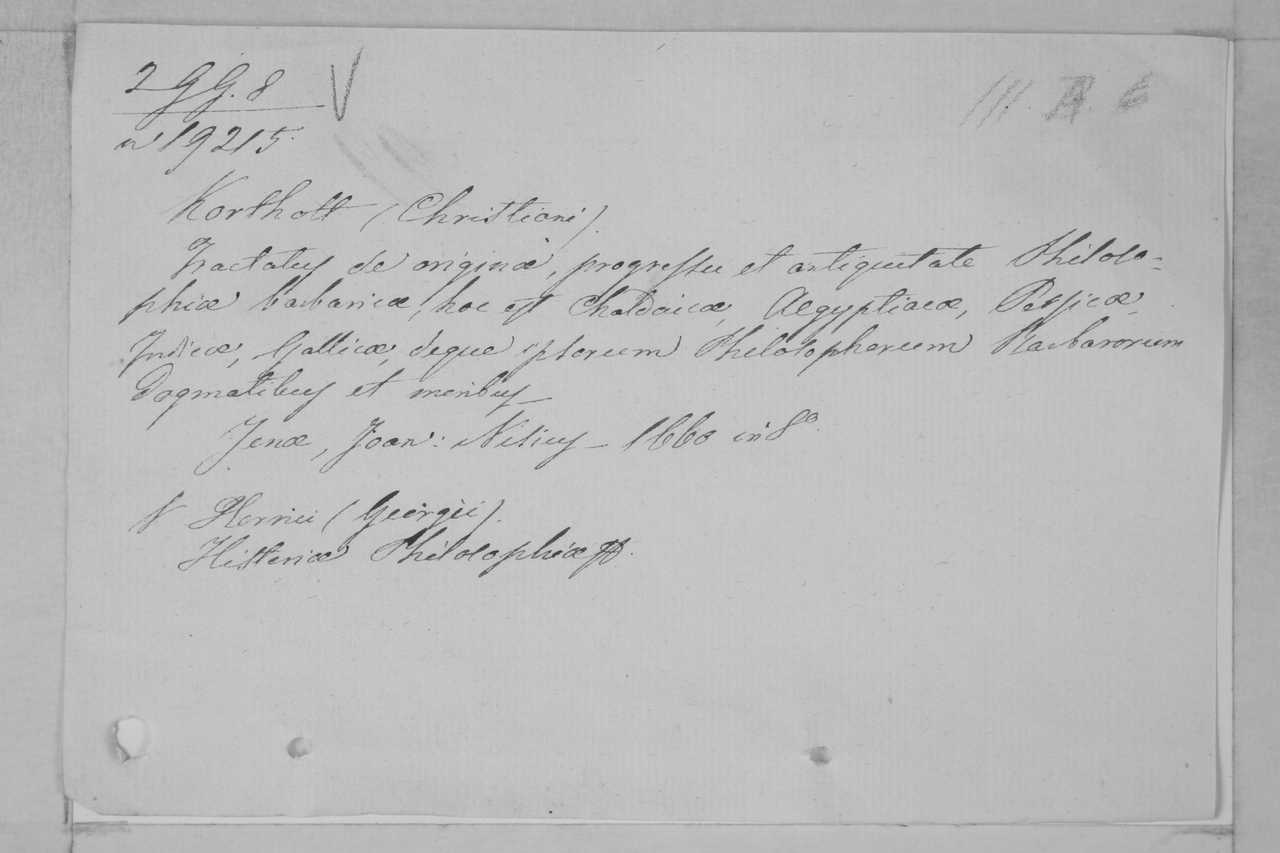 2 GG. 8 V
III. A. 6
n 19215.
Kortholt (Christiani).
Tractatus de originæ, progressu et antiquitate Philoso-
phiæ barbaricæ, hoc est Chaldaicæ, Aegyptiacæ, Persicæ,
Indicæ, Gallicæ, deque ipsorum Philosophorum Barbarorum
Dogmatibus et moribus_
Jenæ, Joan: Nisius_ 1660 in 8º.
V Hornii (Georgii).
Historiæ Philosophiæ